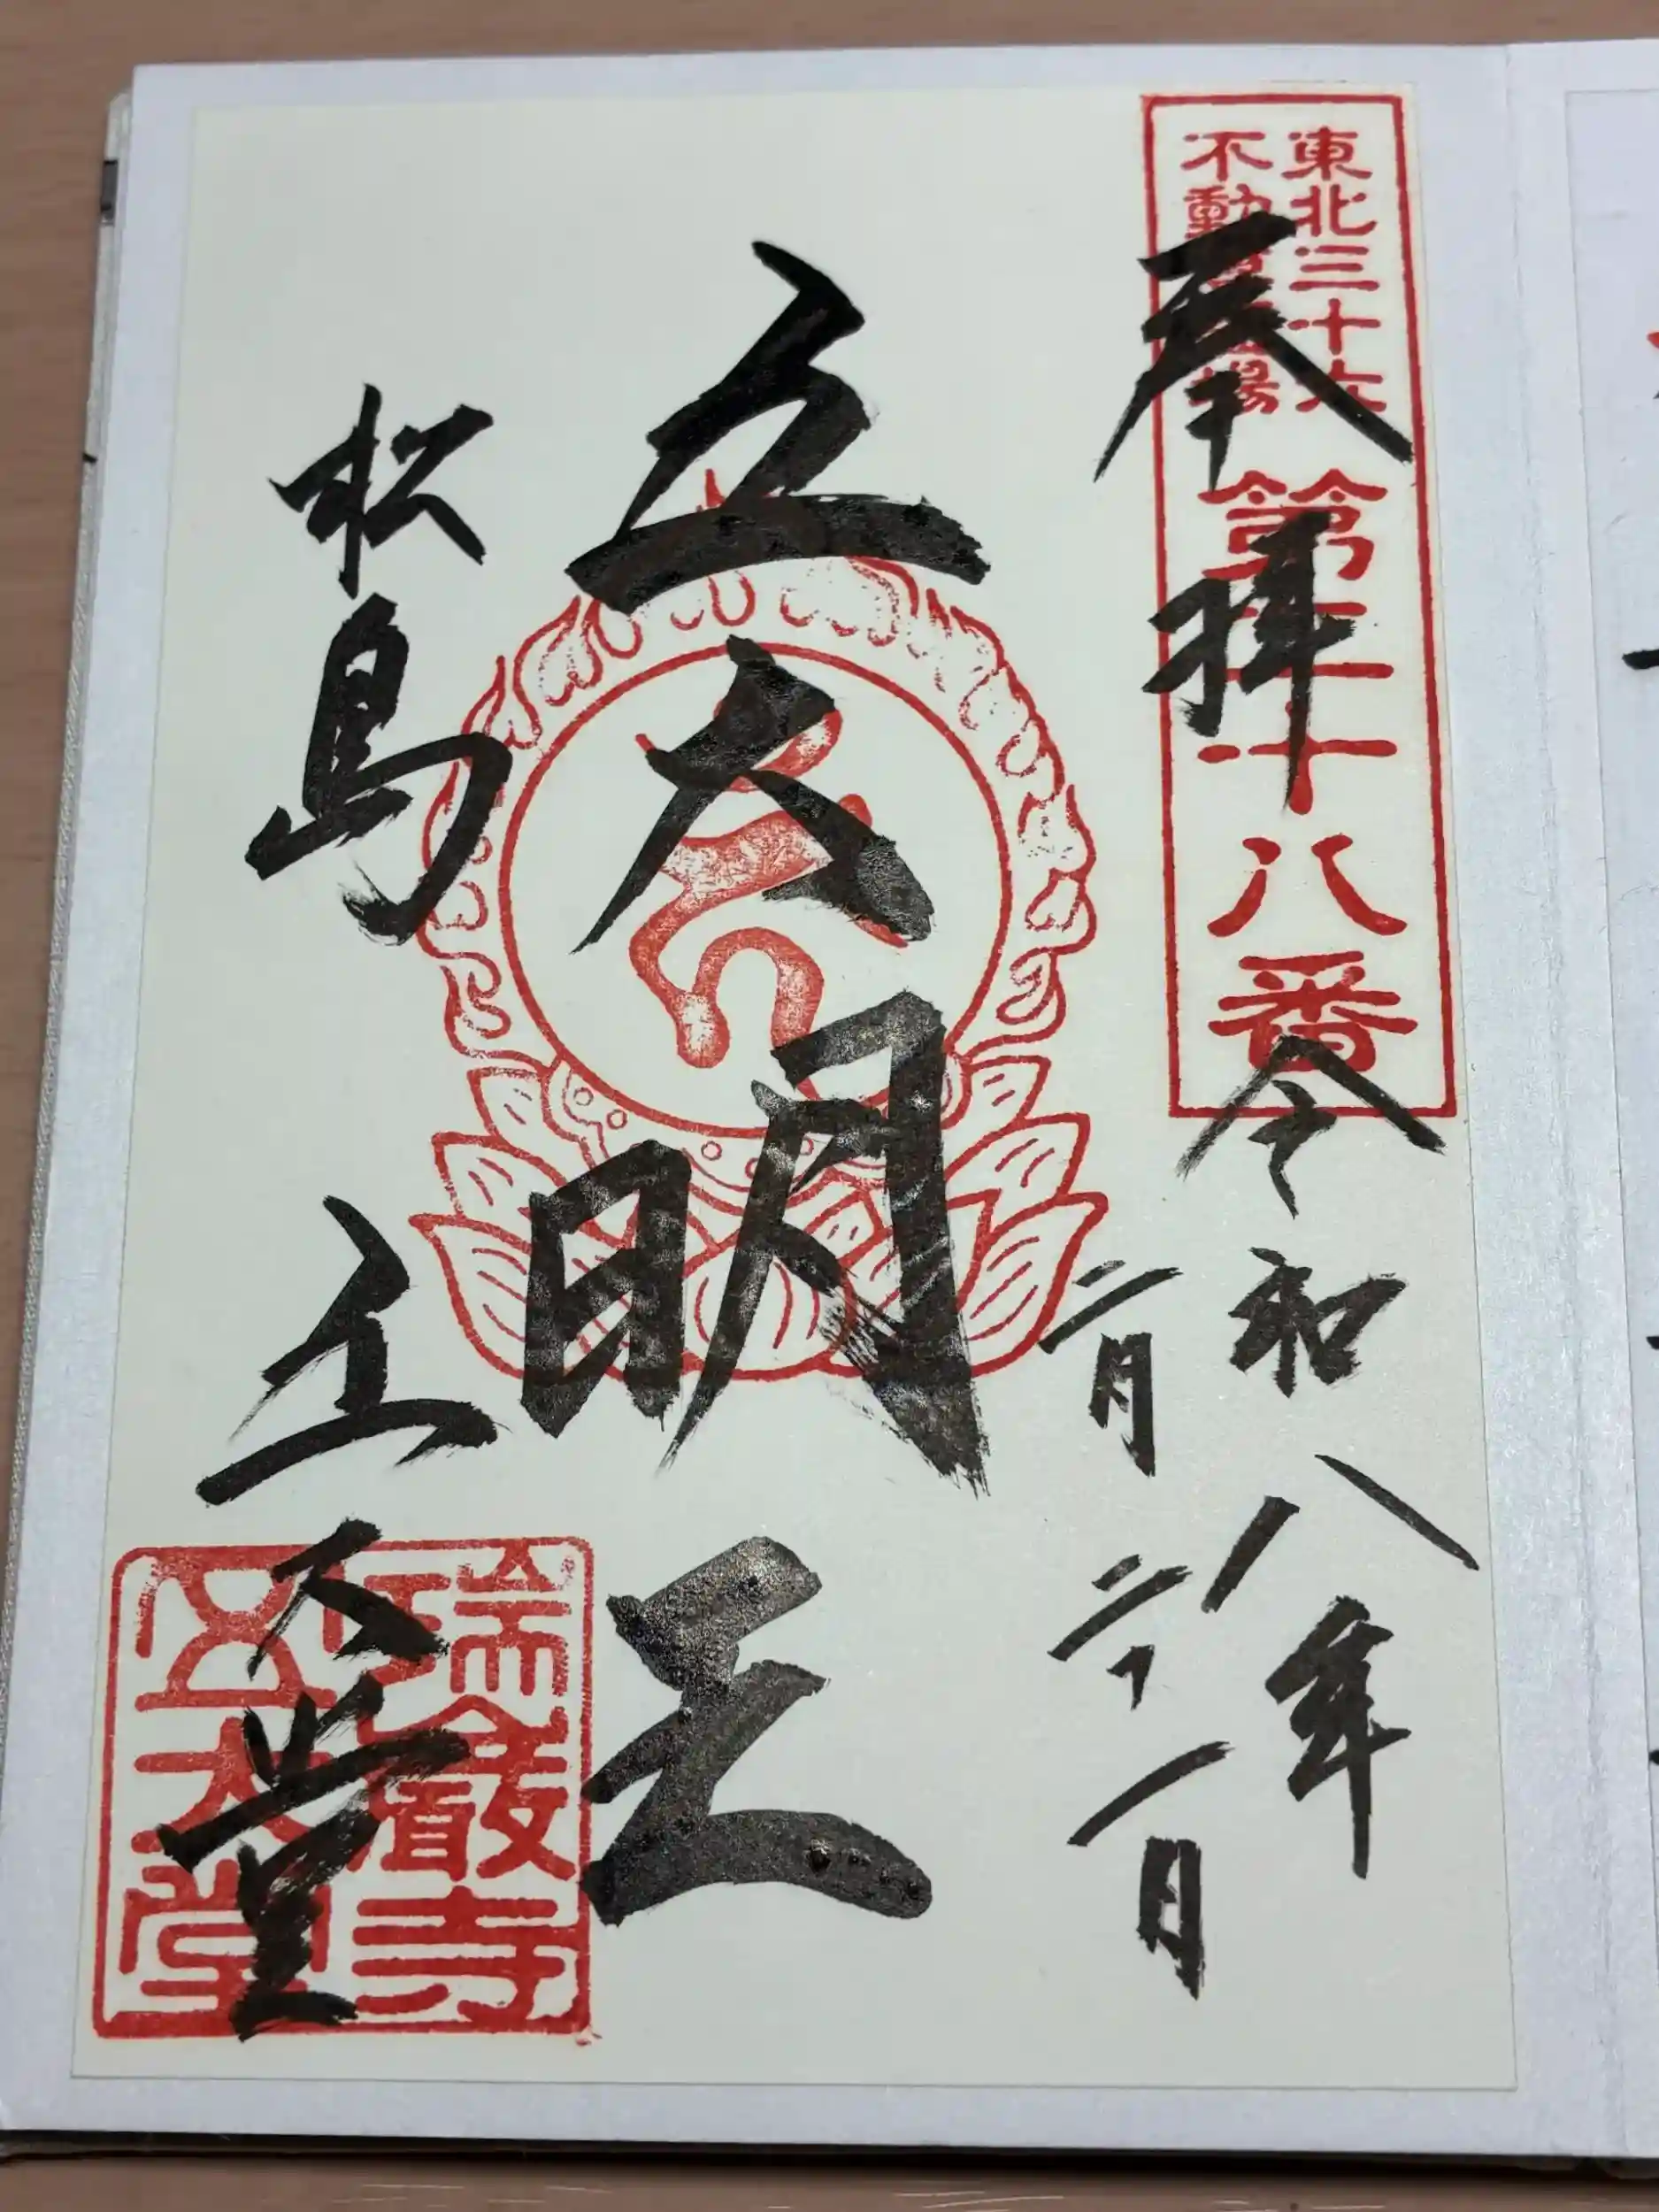 東北三十六
不動尊霊場
第二十八番
奉拝
令和八年
二月二十一日
五大明王
松島
五大堂
瑞巖寺
五大堂